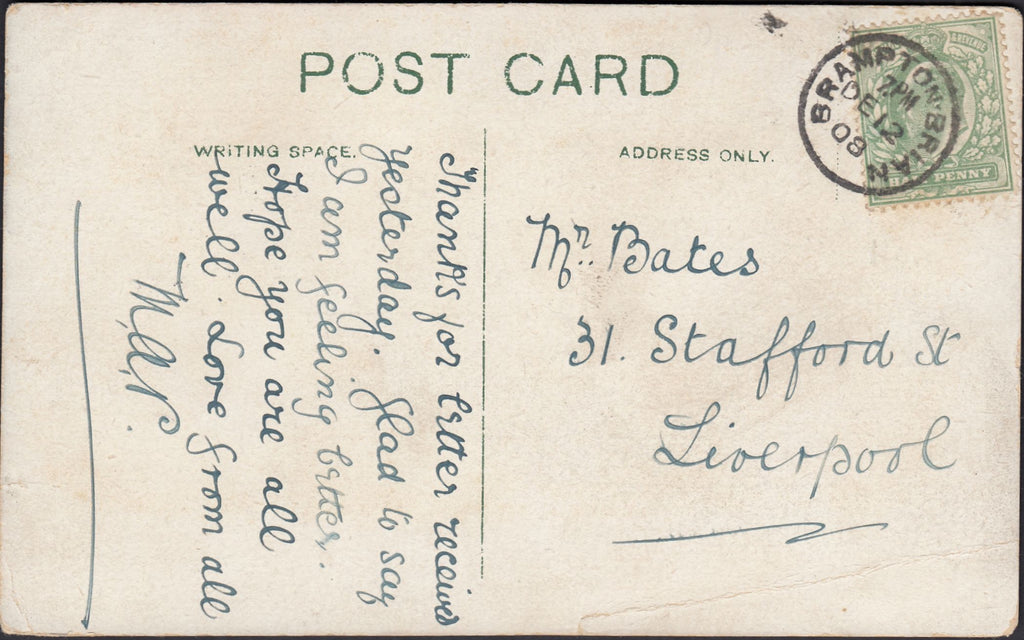 POST CARD
WRITING SPACE.
ADDRESS ONLY.
BRAMPTON·BRIAN
7PM
DE 12
08
PENNY
Thanks for letter received
Yesterday. Glad to say
I am feeling better.
Hope you are all
well. Love from all
Mr. Bates
31. Stafford St
Liverpool